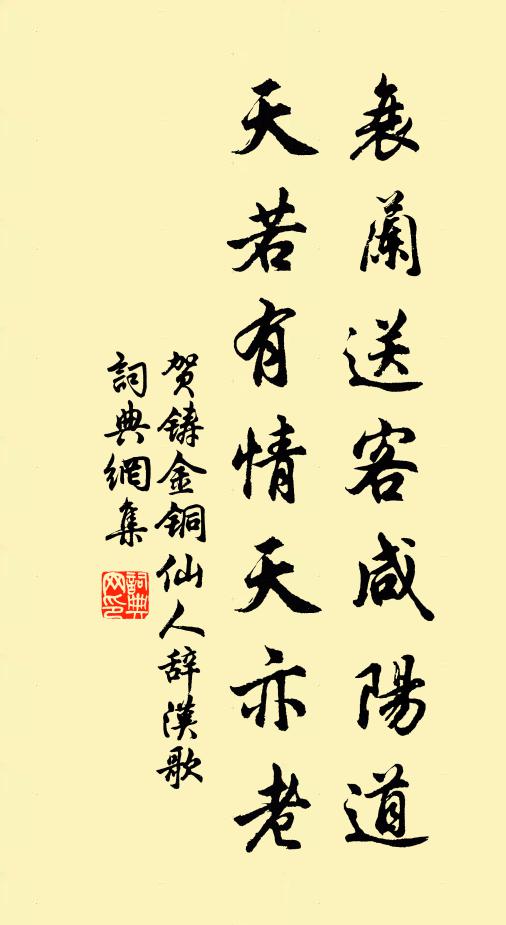 衰蘭送客咸陽道
天若有情天亦老
贺铸金铜仙人辞漢歌
詞典網集
詞典網印